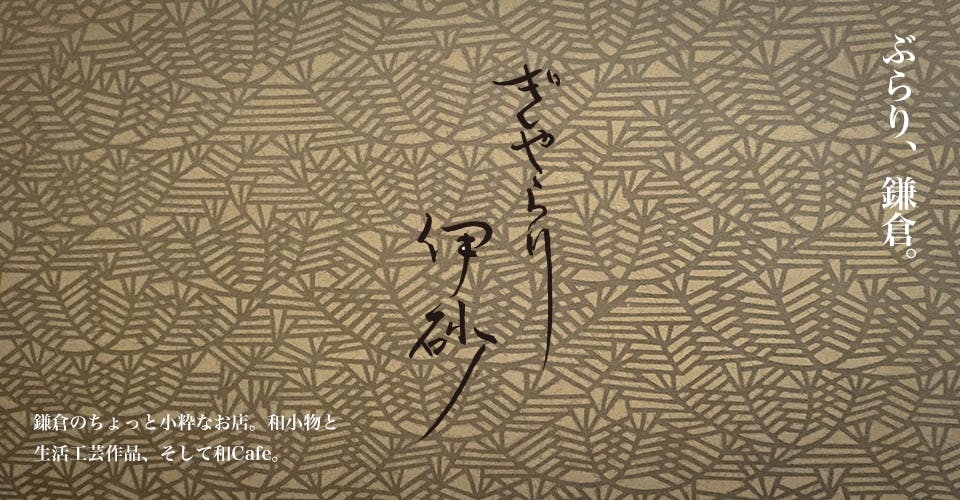 ぶらり、鎌倉。
ぎゃらり
伊砂
鎌倉のちょっと小粋なお店。和小物と
生活工芸作品、そして和Cafe。